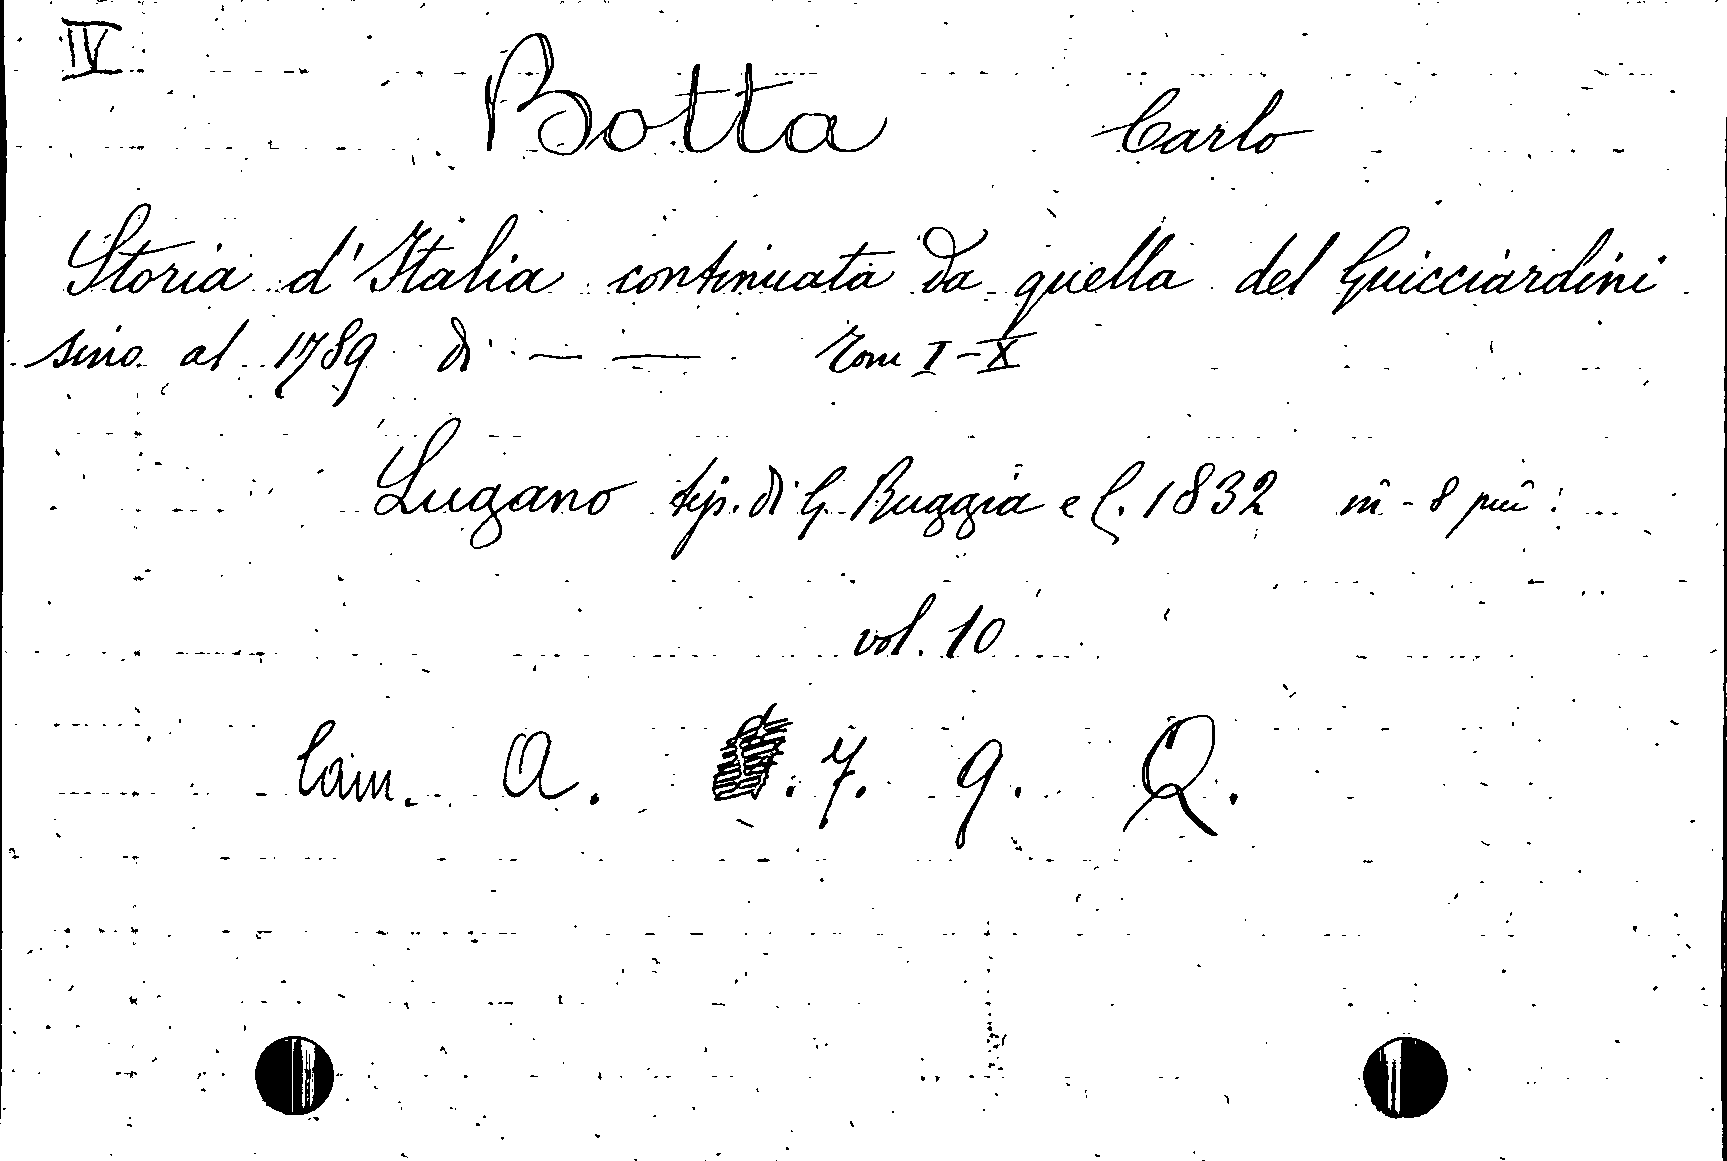 IV
Botta Carlo
Storia d'Italia continuata da quella del Guicciardini
sino al 1789 di — — Tom I-X
Lugano tip. di G. Ruggia e C. 1832 in-8 picc:
vol. 10
Cam. A. 7. 9. Q.